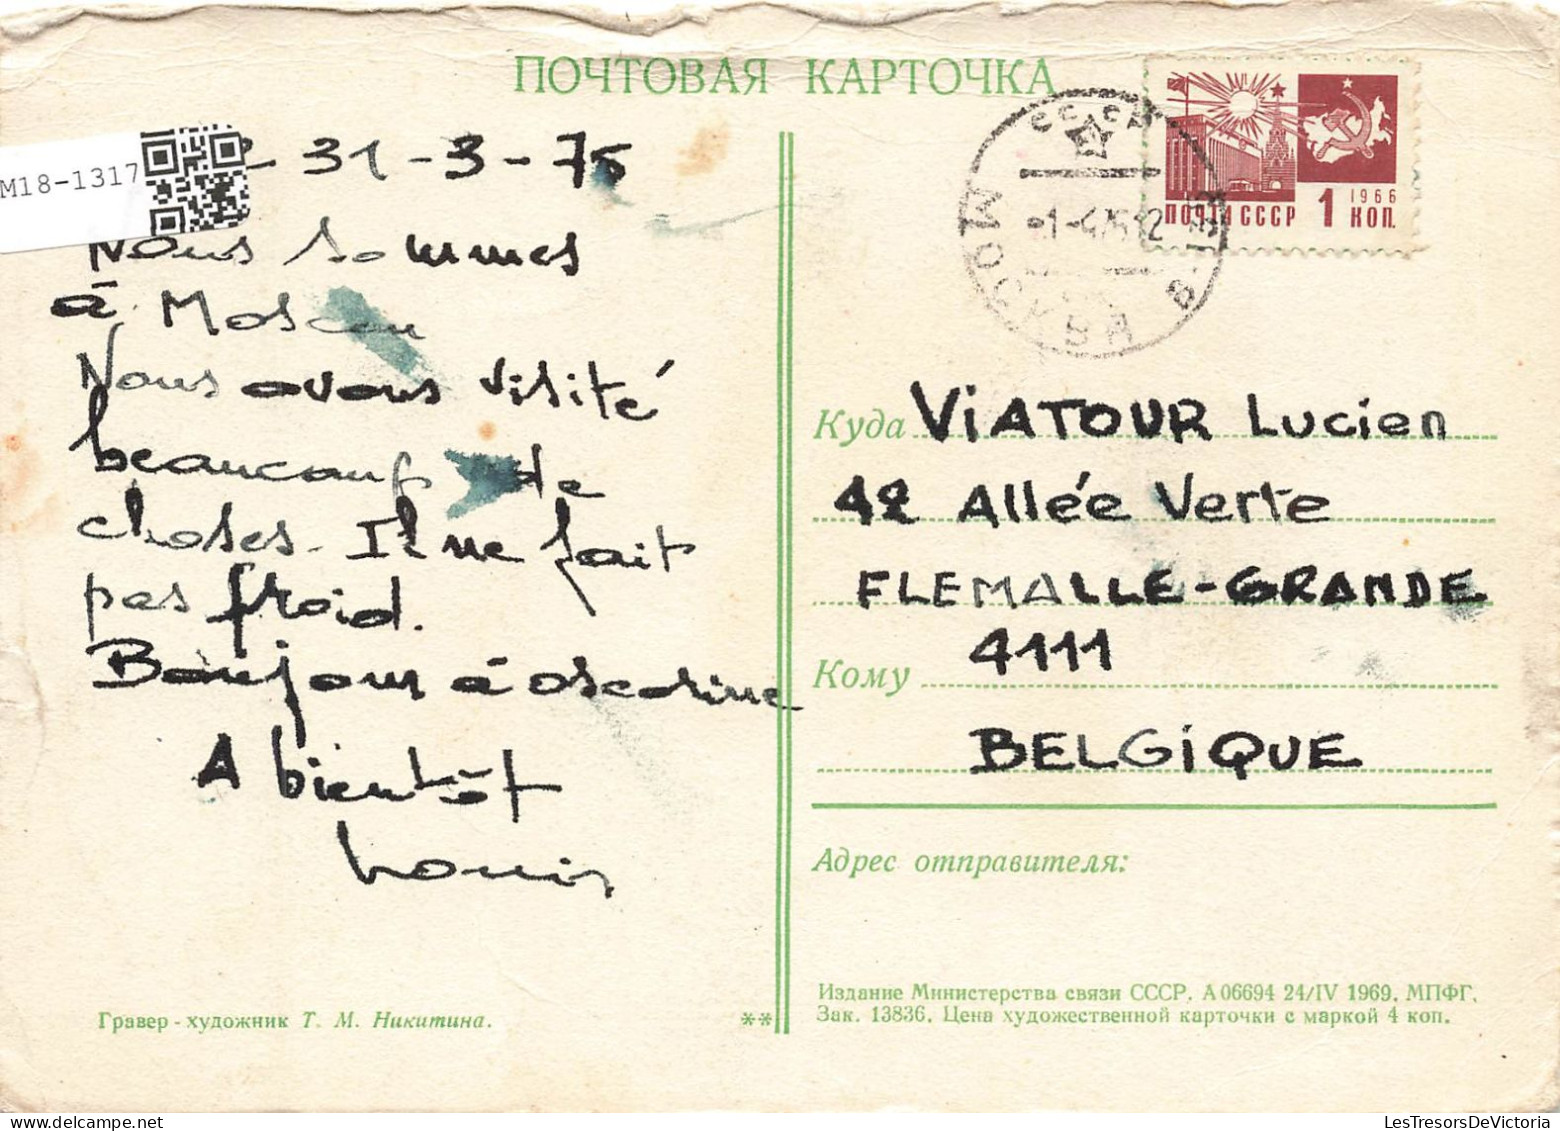 ПОЧТОВАЯ КАРТОЧКА
M18-1317
31-3-75
Nous sommes
à Moscou
Nous avons visité
beaucoup de
choses. Il ne fait
pas froid.
Bonjour à oscarine
A bientôt
Louis
Гравер-художник Т. М. Никитина.
**
СССР
МОСКВА
ПОЧТА СССР 1 КОП.
1966
Куда VIATOUR Lucien
42 Allée Verte
FLEMALLE-GRANDE
4111
Кому
BELGIQUE
Адрес отправителя:
Издание Министерства связи СССР. А 06694 24/IV 1969. МПФГ.
Зак. 13836. Цена художественной карточки с маркой 4 коп.
LesTresorsDeVictoria